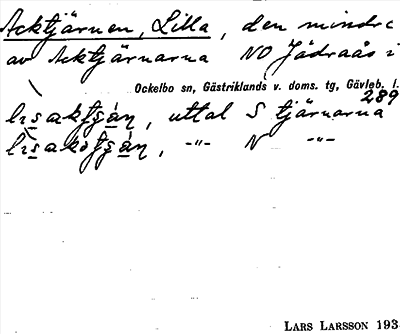 Acktjärnen, Lilla, den mindre
av Acktjärnarna NO Jädraås i
Ockelbo sn, Gästriklands v. doms. tg, Gävleb. l.
289
uttal S tjärnarna
, -"- N -"-
LARS LARSSON 193